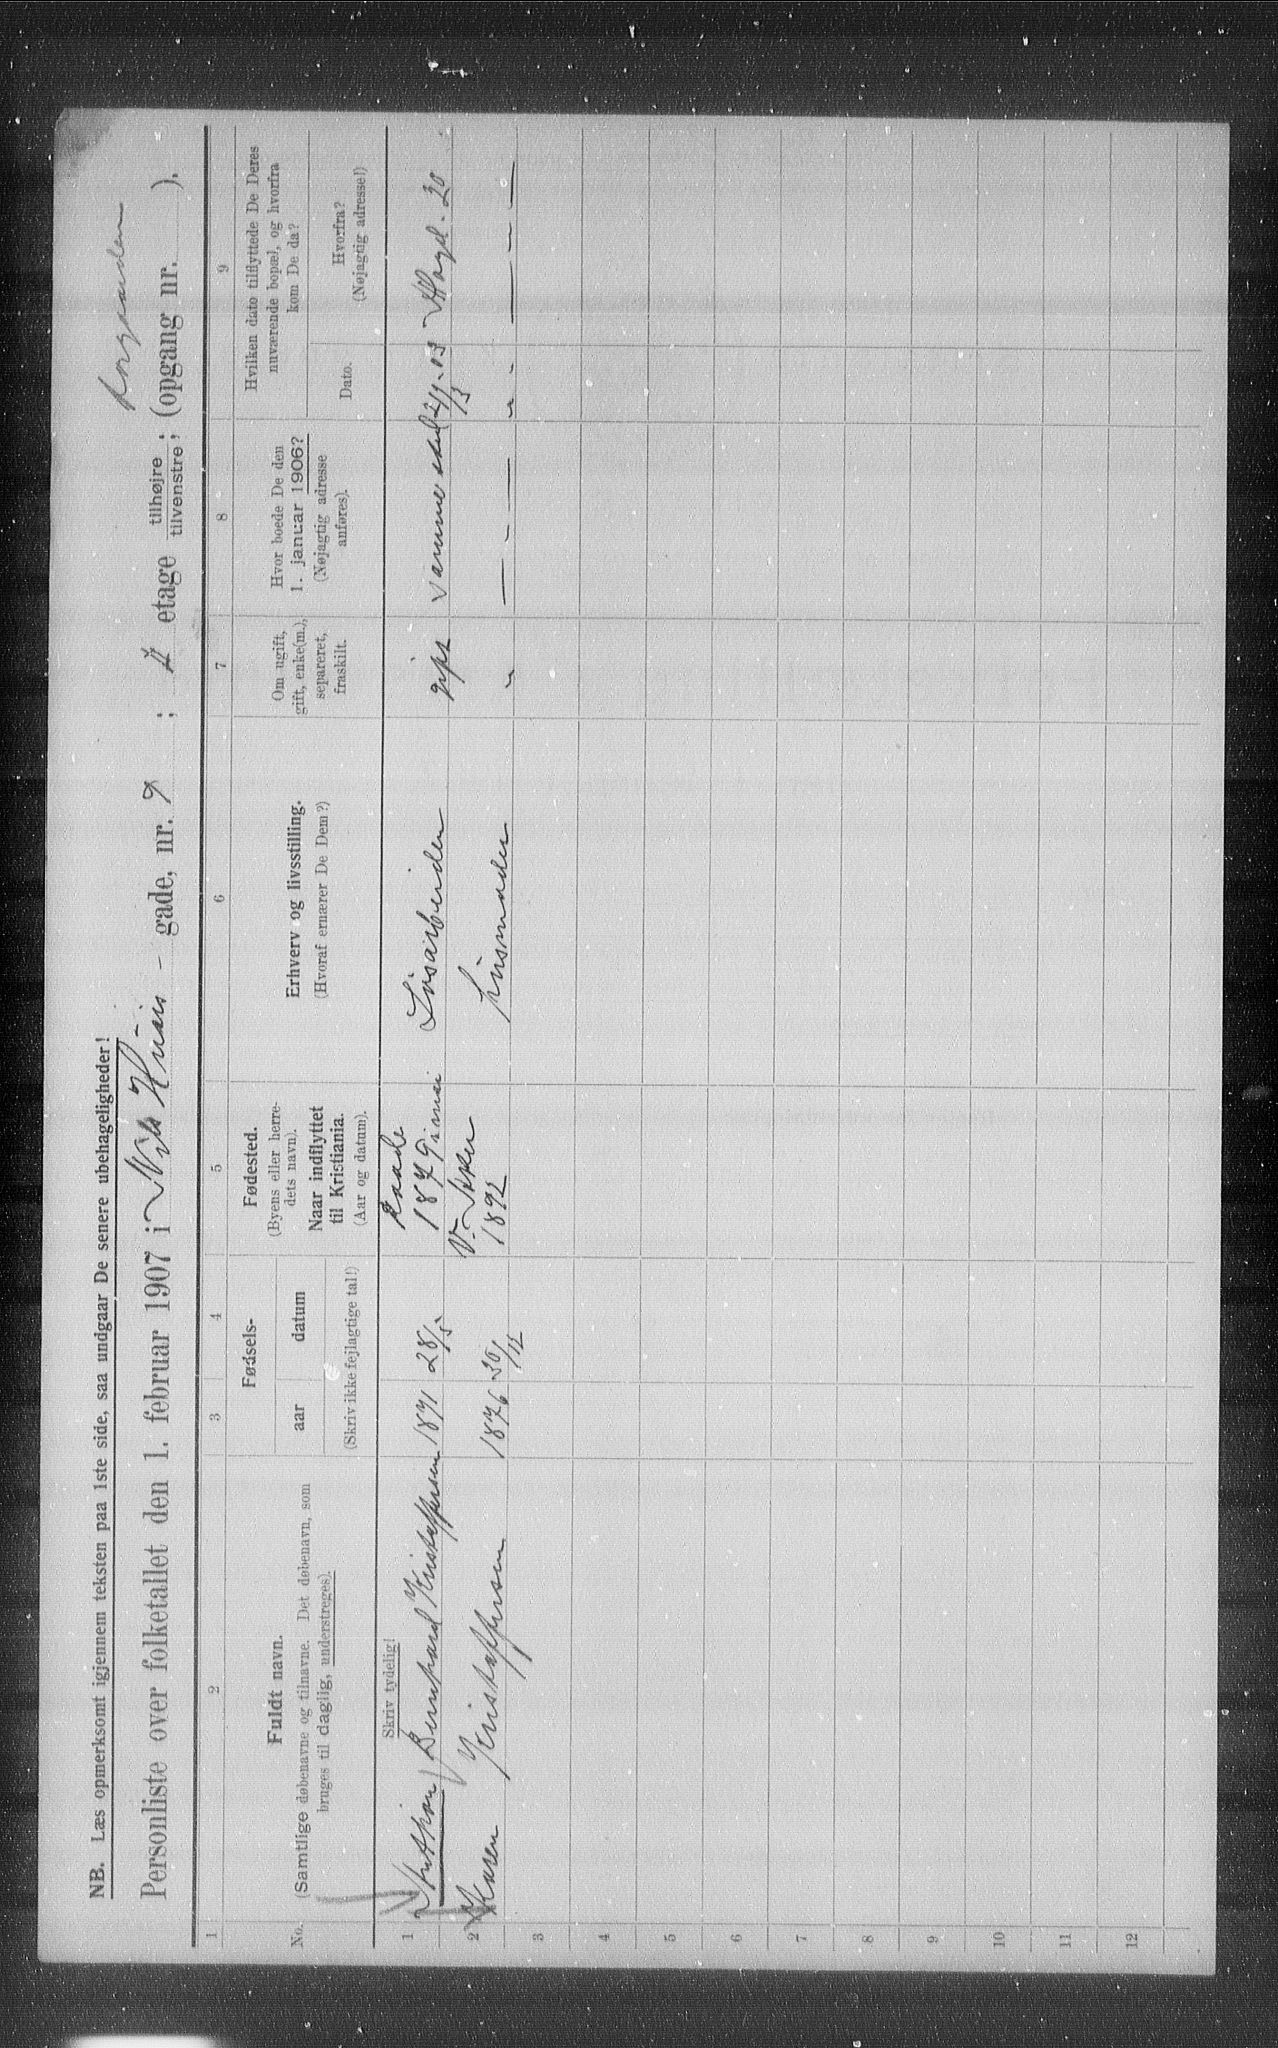 NB. Læs opmerksomt igjennem teksten paa 1ste side, saa undgaar De senere ubehageligheder!
forgaarden
Personliste over folketallet den 1. februar 1907 i Nils Huus - gade, nr. 9 ; II etage tilhøjre; tilvenstre; (opgang nr. ).
1 2 3 4 5 6 7 8 9
No.
Fuldt navn.
(Samtlige døbenavne og tilnavne. Det døbenavn, som
bruges til daglig, understreges).
Fødsels-
aar datum
(Skriv ikke fejlagtige tal!)
Fødested.
(Byens eller herre-
dets navn).
Naar indflyttet
til Kristiania.
(Aar og datum).
Erhverv og livsstilling.
(Hvoraf ernærer De Dem?)
Om ugift,
gift, enke(m.),
separeret,
fraskilt.
Hvor boede De den
1. januar 1906?
(Nøjagtig adresse
anføres).
Hvilken dato tilflyttede De Deres
nuværende bopæl, og hvorfra
kom De da?
Dato.
Hvorfra?
(Nøjagtig adresse!)
Skriv tydelig!
1 Anthon Bernhard Kristoffersen 1871 28/5 Raade 1879 i mai Løsarbeider gift samme sted 24/3 - 03 Hagl. 20
2 Karen Kristoffersen 1876 30/11 V. Aker 1892 Husmoder " — " — " " — " —
3
4
5
6
7
8
9
10
11
12